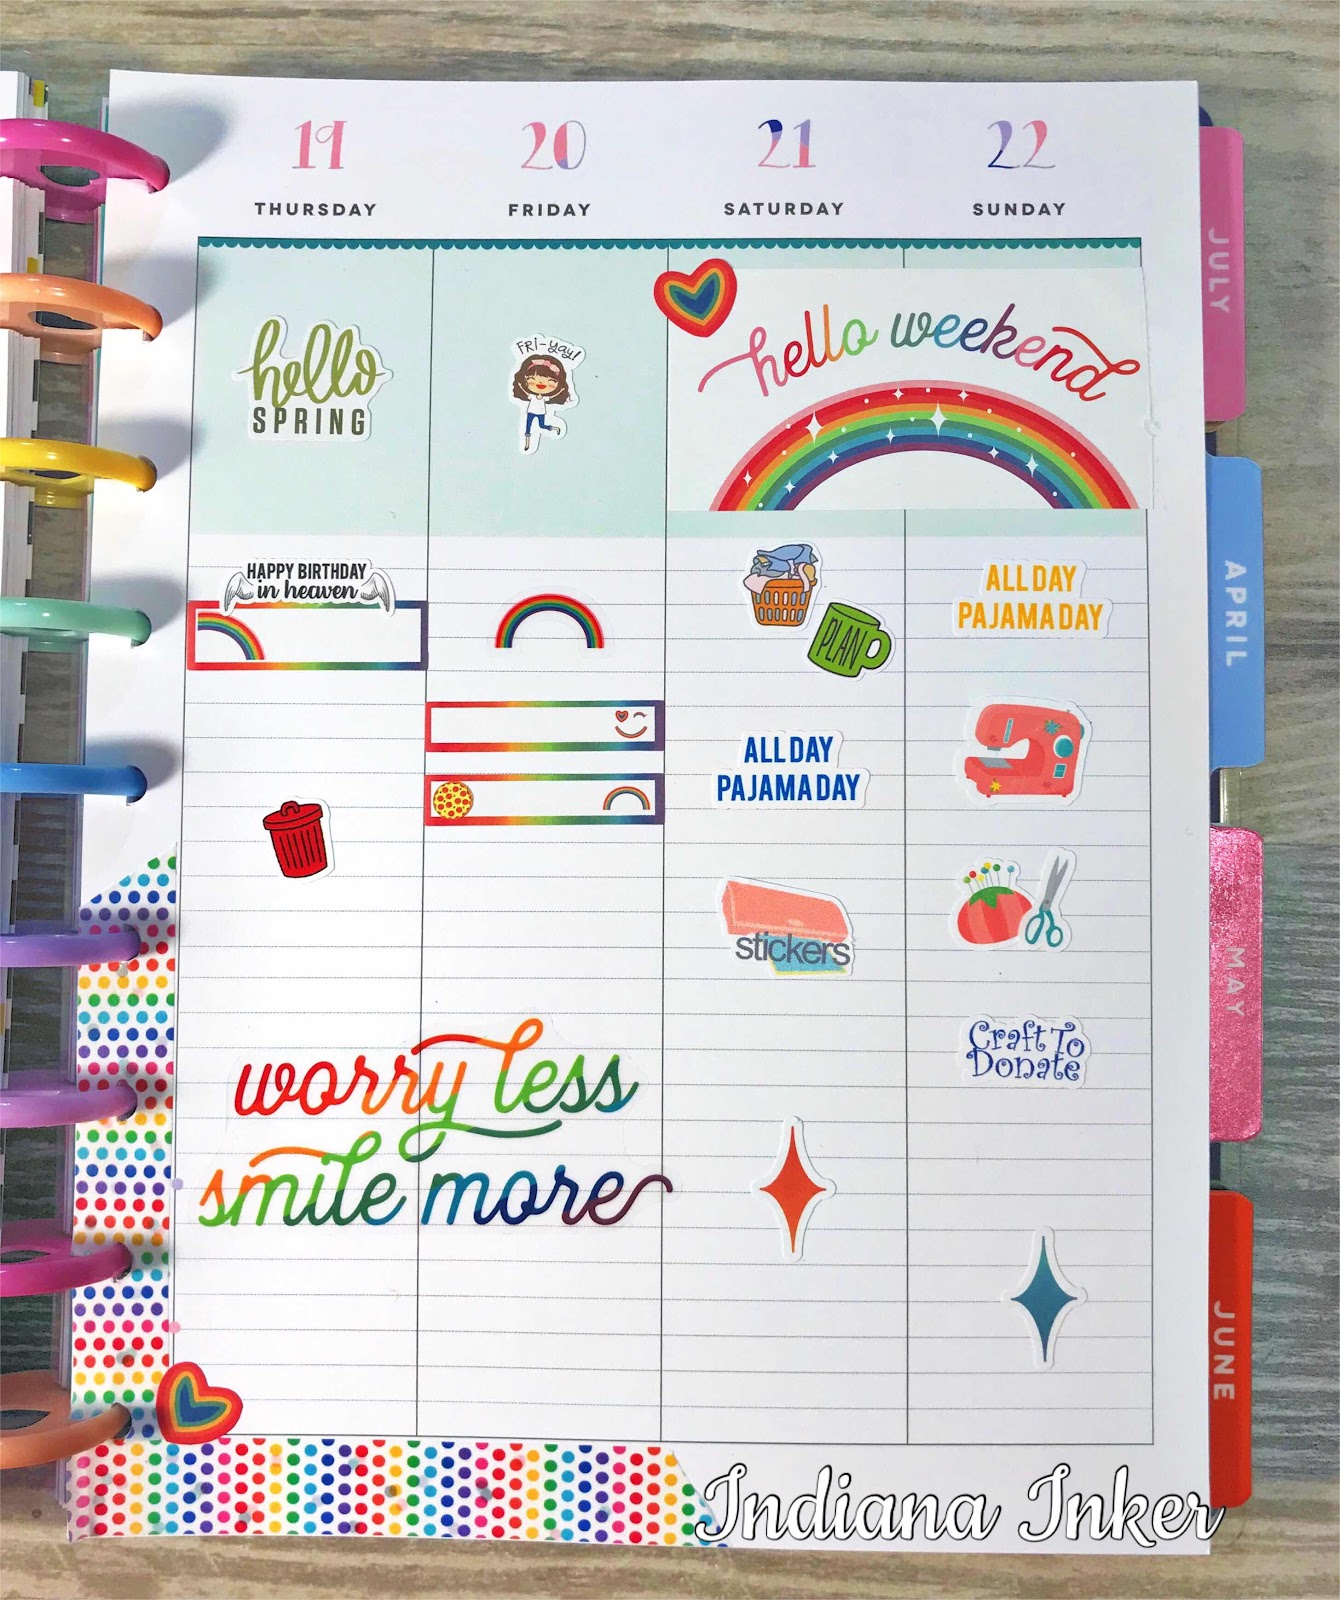 19 20 21 22
THURSDAY FRIDAY SATURDAY SUNDAY
hello
SPRING
FRI-YAY!
hello weekend
HAPPY BIRTHDAY
in heaven
PLAN
ALL DAY
PAJAMA DAY
ALL DAY
PAJAMA DAY
stickers
Craft To
Donate
worry less
smile more
JULY
APRIL
MAY
JUNE
Indiana Inker